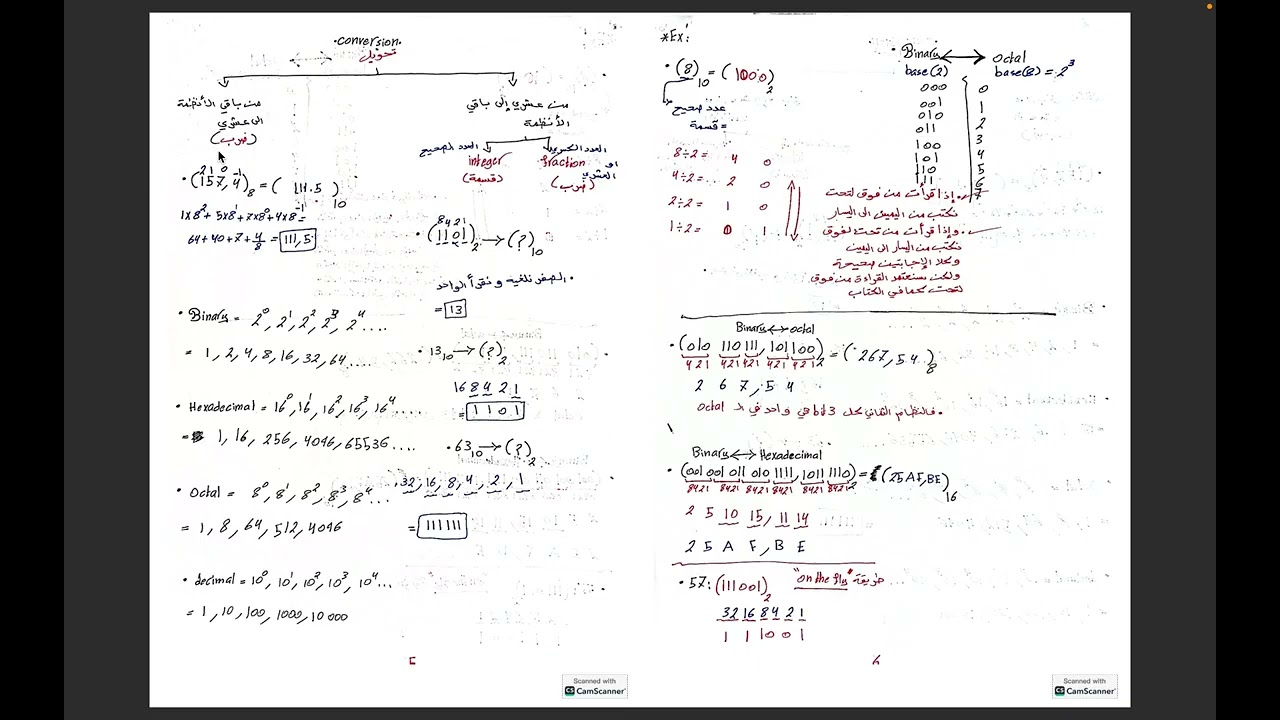 .conversion.
تحويل
من باقي الأنظمة
الى عشري
(ضرب)
من عشري إلى باقي
الأنظمة
العدد الصحيح
integer
(قسمة)
العدد الكسري
او
العشري
fraction
(ضرب)
2 1 0 -1
• (157,4)₈ = ( 111.5 )₁₀
1x8² + 5x8¹ + 7x8⁰ + 4x8⁻¹ =
64 + 40 + 7 + 4/8 = 111,5
8421
• (1101)₂ → (?)₁₀
• الصفر نلغيه و نقرأ الواحد
= 13
• Binary = 2⁰, 2¹, 2², 2³, 2⁴....
= 1, 2, 4, 8, 16, 32, 64.....
• 13₁₀ → (?)₂
16 8 4 2 1
= 1 1 0 1
• Hexadecimal = 16⁰, 16¹, 16², 16³, 16⁴....
= 1, 16, 256, 4096, 65536....
• 63₁₀ → (?)₂
32, 16, 8, 4, 2, 1
= 111111
• Octal = 8⁰, 8¹, 8², 8³, 8⁴...
= 1, 8, 64, 512, 4096
• decimal = 10⁰, 10¹, 10², 10³, 10⁴...
= 1, 10, 100, 1000, 10 000
5
Scanned with
CS CamScanner
*Ex:
• (8)₁₀ = (1000)₂
عدد صحيح
= قسمة
8÷2= 4 0
4÷2= 2 0
2÷2= 1 0
1÷2= 0 1
• Binary ↔ Octal
base(2) base(8) = 2³
000 0
001 1
010 2
011 3
100 4
101 5
110 6
111 7
• إذا قرأت من فوق لتحت
نكتب من اليمين الى اليسار
• وإذا قرأت من تحت لفوق
نكتب من اليسار الى اليمين
وكلا الإجابتين صحيحة
ولكن سنعتمد القراءة من فوق
لتحت كما في الكتاب
Binary ↔ octal
• (010 110 111, 101 100)₂ = (267,54)₈
421 421 421 421 421
2 6 7, 5 4
• فالنظام الثنائي كل 3 bit هي واحد في الـ Octal
Binary ↔ Hexadecimal
• (001 001 011 010 1111, 1011 1110)₂ = (25AF,BE)₁₆
8421 8421 8421 8421 8421 8421
2 5 10 15, 11 14
2 5 A F, B E
• 57: (111001)₂ "on the fly" طريقة
32 16 8 4 2 1
1 1 1 0 0 1
6
Scanned with
CS CamScanner